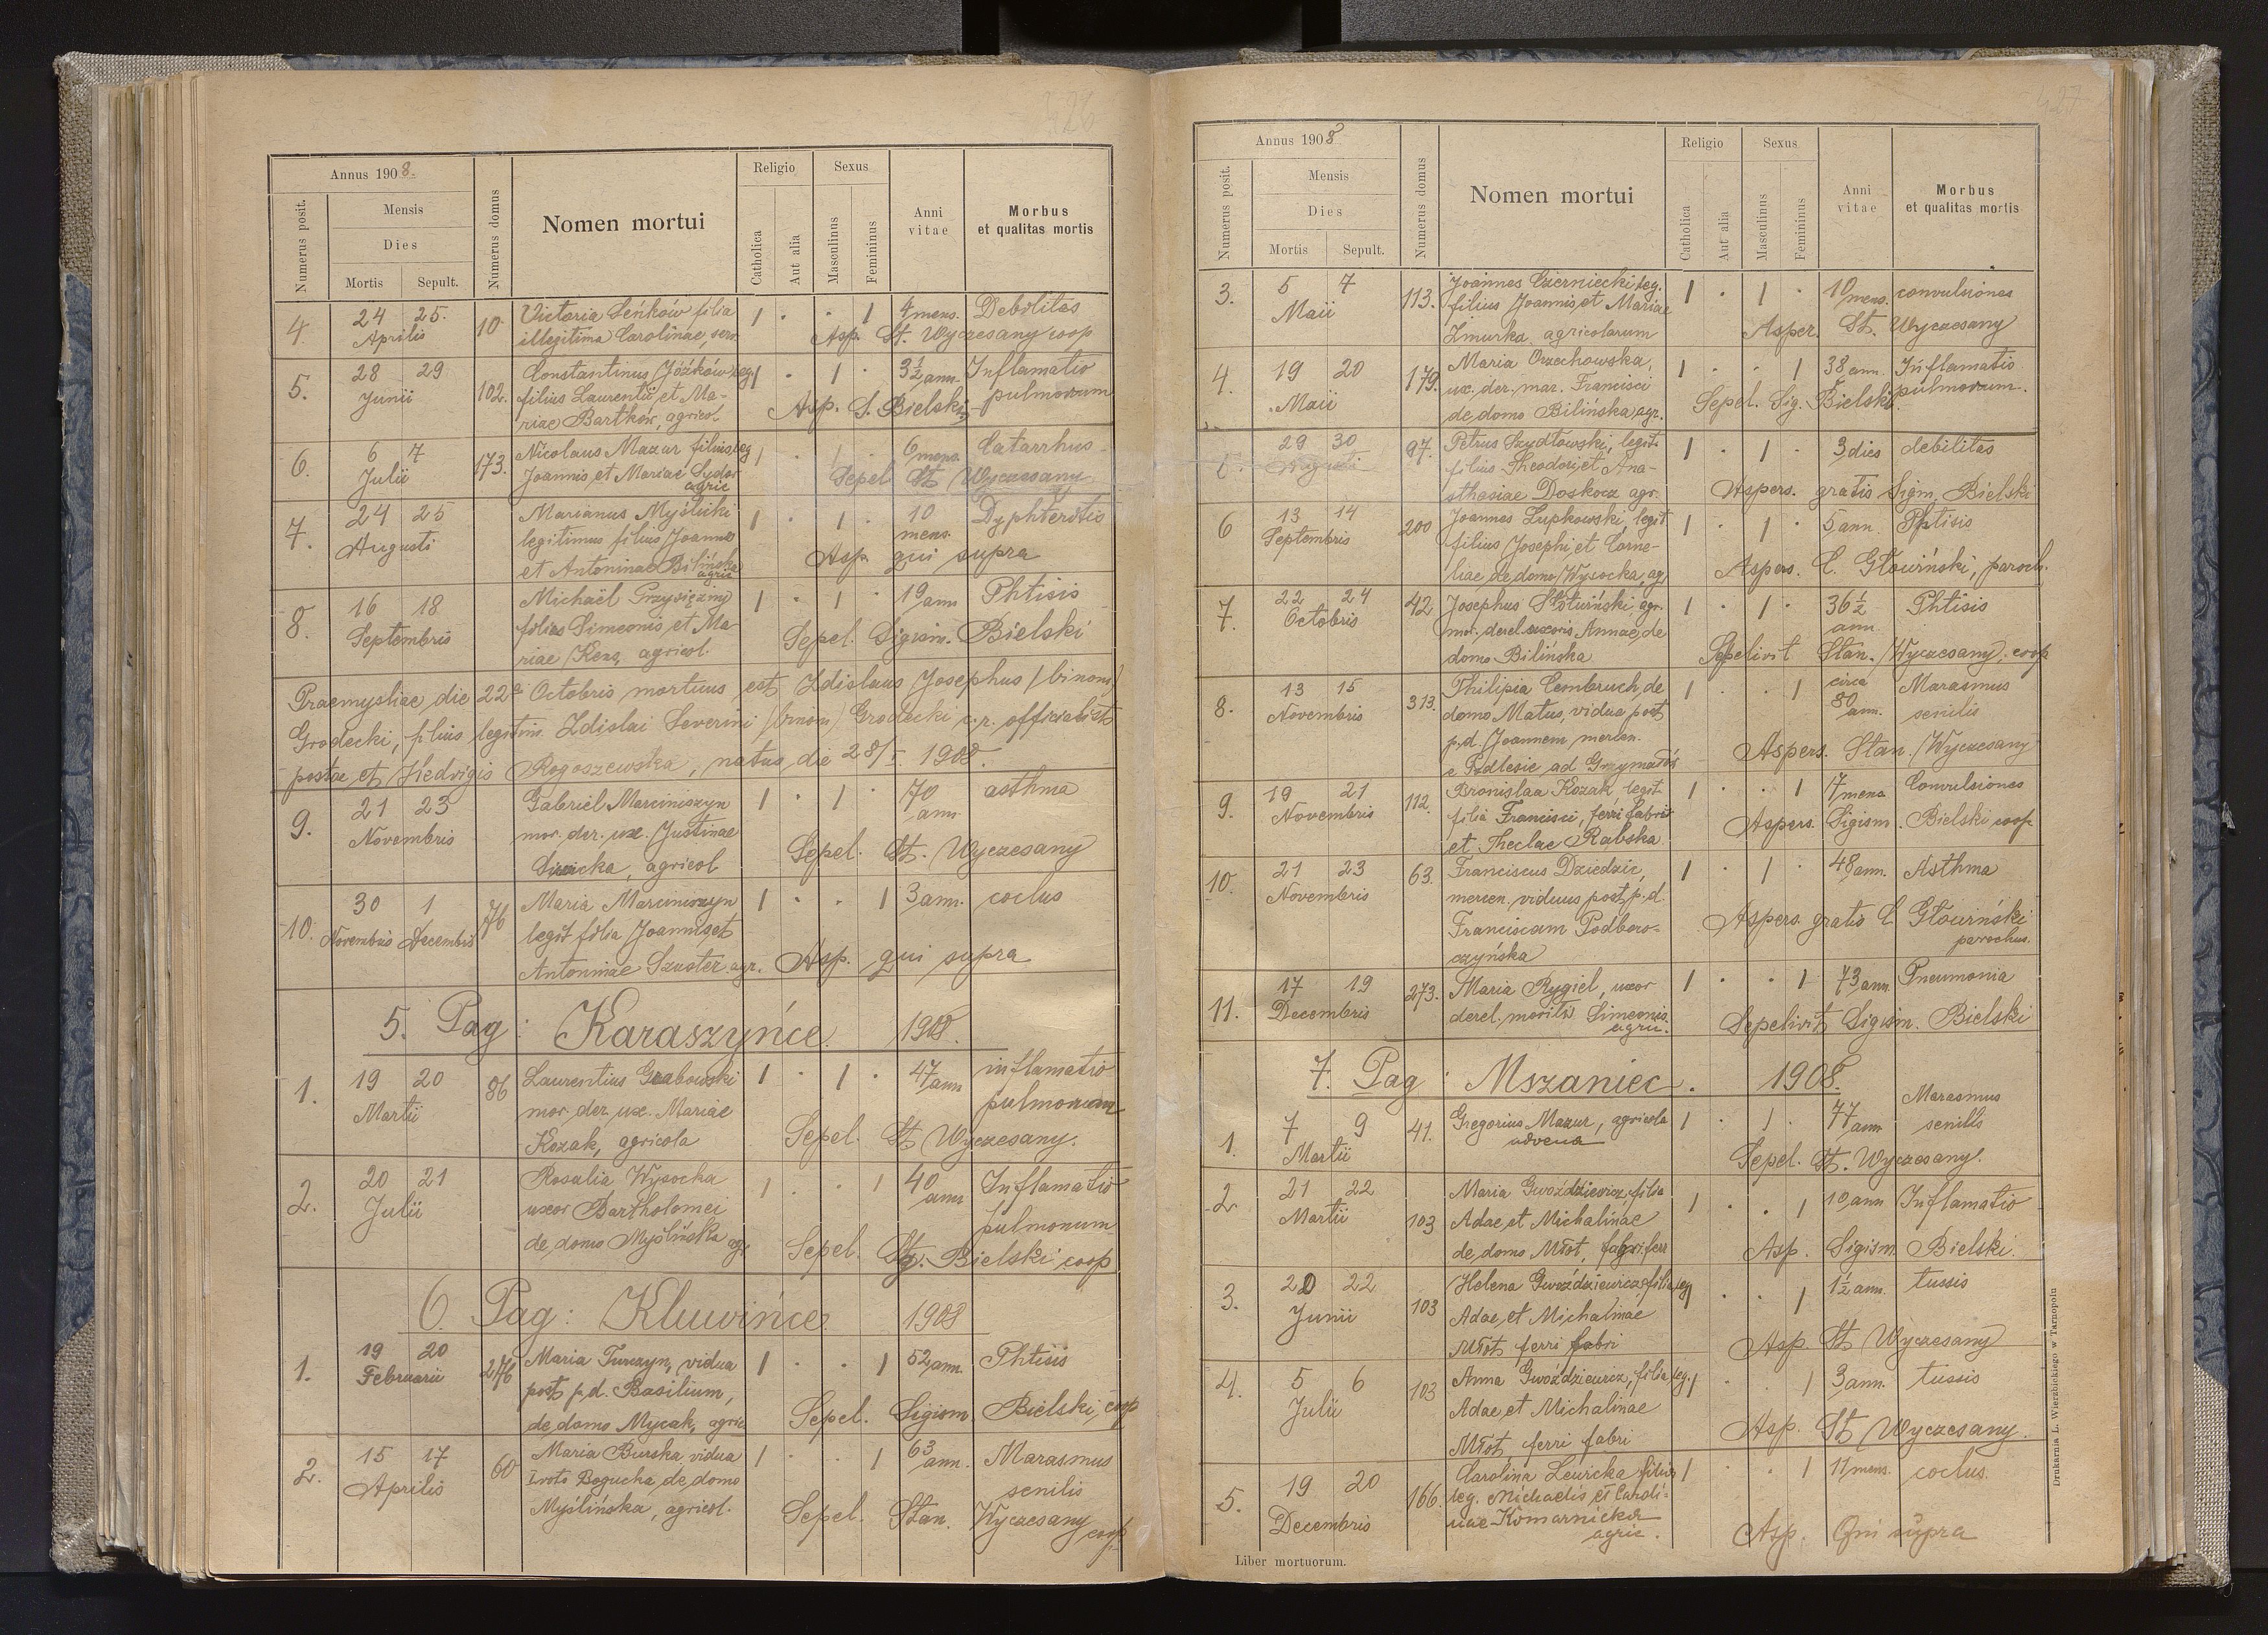 428
Annus 1908.
Numerus posit.
Mensis
Dies
Mortis
Sepult.
Numerus domus
Nomen mortui
Religio
Catholica
Aut alia
Sexus
Masculinus
Femininus
Anni vitae
Morbus et qualitas mortis
4. 24 25. 10. Victoria Seńków filia 1 · · 1 4 mens. Debilitas
Aprilis illegitima Carolinae, serv. Asp. St. Wyczesany coop
5. 28 29 102. Constantinus Józków leg 1 · 1 · 3½ ann. Inflamatio
Junii filius Laurentii et Ma- Asp. S. Bielski pulmonum
riae Bartków, agricol.
6. 6 7 173. Nicolaus Mazur filius leg 1 · 1 · 6 mens. Catarrhus
Julii Joannis et Mariae Sydor Sepel St Wyczesany
agric
7. 24 25 Marianus Myślicki 1 · 1 · 10 mens. Dyphteritis
Augusti legitimus filius Joannis Asp. qui supra
et Antoninae Bilińska
agric
8. 16 18 Michaël Przysiężny 1 · 1 · 19 ann Phtisis
Septembris filius Simeonis et Ma Sepel. Sigism. Bielski
riae Kens, agricol.
Praemysliae die 22ª Octobris mortuus est Zdislaus Josephus /binom/
Grodecki, filius legitim. Zdislai Severini /binom/ Grodecki c.r. officialis
postae et Hedvigis Rogoszewska, natus die 28/I. 1908.
9. 21 23 Gabriel Marciniszyn 1 · 1 · 70 ann asthma
Novembris mor. der. ux. Justinae Sepel. St. Wyczesany
agricol
10. 30 1 76 Maria Marciniszyn 1 · · 1 3 ann. coclus
Novembris Decembris legit filia Joannis et
Antoninae Szuster agr. Asp. qui supra
5. Pag: Karaszyńce. 1908.
1. 19 20 86 Laurentius Grabowski 1 · 1 · 47 ann inflamatio
Martii mor. der. ux. Mariae pulmonum
Kozak, agricola Sepel. St Wyczesany.
2. 20 21 Rosalia Wysocka 1 · · 1 40 ann Inflamatio
Julii uxor Bartholomei pulmonum
de domo Myślińska agr. Sepel. Sg. Bielski coop
6. Pag: Kluwińce. 1908
1. 19 20 276 Maria Turczyn, vidua 1 · · 1 52 ann. Phtisis
Februarii post p.d. Basilium,
de domo Mycak, agric Sepel. Sigism. Bielski, coop
2. 15 17 60 Maria Burska, vidua 1 · · 1 63 ann. Marasmus
Aprilis I voto Bogucka, de domo senilis
Myślińska, agricol. Sepel. Stan. Wyczesany coop.
427
Annus 1908
Numerus posit.
Mensis
Dies
Mortis
Sepult.
Numerus domus
Nomen mortui
Religio
Catholica
Aut alia
Sexus
Masculinus
Femininus
Anni vitae
Morbus et qualitas mortis
3. 5 7 113. Joannes Czerniecki leg. 1 · 1 · 10 mens. convulsiones
Maii filius Joannis et Mariae
Żmurka agricolarum Asper. St. Wyczesany
4. 19 20 179. Maria Orzechowska, 1 · · 1 38 ann. Inflamatio
Maii ux. der. mar. Francisci pulmonum.
de domo Bilińska agr. Sepel. Sig. Bielski
5. 29 30 97. Petrus Szydłowski, legit. 1 · 1 · 3 dies debilitas
Augusti filius Theodori et Ana-
sthasiae Doskocz agr. Aspers. gratis Sigm. Bielski
6 13 14 200 Joannes Łupkowski, legit 1 · 1 · 5 ann. Phtisis
Septembris filius Josephi et Corne-
liae de domo Wysocka, ag. Aspers. C. Głowiński, paroch.
7. 22 24 42 Josephus agr. 1 · 1 · 36½ ann Phtisis
Octobris mor. derel. uxoris Annae, de
domo Bilińska Sepelivit Stan. Wyczesany, coop
8. 13 15 313. Philipia Cembruch, de 1 · · 1 circa 80 ann. Marasmus
Novembris domo Matus, vidua post senilis
p.d. Joannem mercen. Aspers. Stan. Wyczesany
e Podlesie ad Grzymałów
9. 19 21 112. Bronislaa Kozak, legit. 1 · · 1 7 mens Convulsiones
Novembris filia Francisci, ferri fabri Aspers. Sigism. Bielski coop
et Theclae Rabska
10. 21 23 63. Franciscus Dziedzic, 1 · 1 · 48 ann. Asthma
Novembris mercen. viduus post p.d.
Franciscam Podboro- Aspers. gratis C. Głowiński
czyńska parochus.
11. 17 19 273. Maria Rygiel, uxor 1 · · 1 73 ann. Pneumonia
Decembris derel. mariti Simeonis Sepelivit Sigism. Bielski
agric.
7. Pag: Mszaniec. 1908.
1. 7 9 41. Gregorius Mazur, agricola 1 · 1 · 77 ann Marasmus senilis
Martii advena Sepel. St. Wyczesany.
2 21 22 103 Maria Gwoździewicz, filia 1 · · 1 10 ann Inflamatio
Martii Adae et Michalinae
de domo Młot, fabri ferr Asp. Sigism. Bielski.
3. 20 22 103 Helena Gwoździewicz filia leg 1 · · 1 1½ ann. tussis
Junii Adae et Michalinae
Młot ferri fabri Asp. St Wyczesany
4. 5 6 103 Anna Gwoździewicz, filia leg. 1 · · 1 3 ann. tussis
Julii Adae et Michalinae
Młot ferri fabri Asp. St Wyczesany.
5. 19 20 166. Carolina Lewicka filia 1 · · 1 11 mens. coclus.
Decembris leg. Michaelis et Caroli-
nae Komarnicka Asp. Qui supra
agric.
Liber mortuorum.
Drukarnia L. Wierzbickiego w Tarnopolu